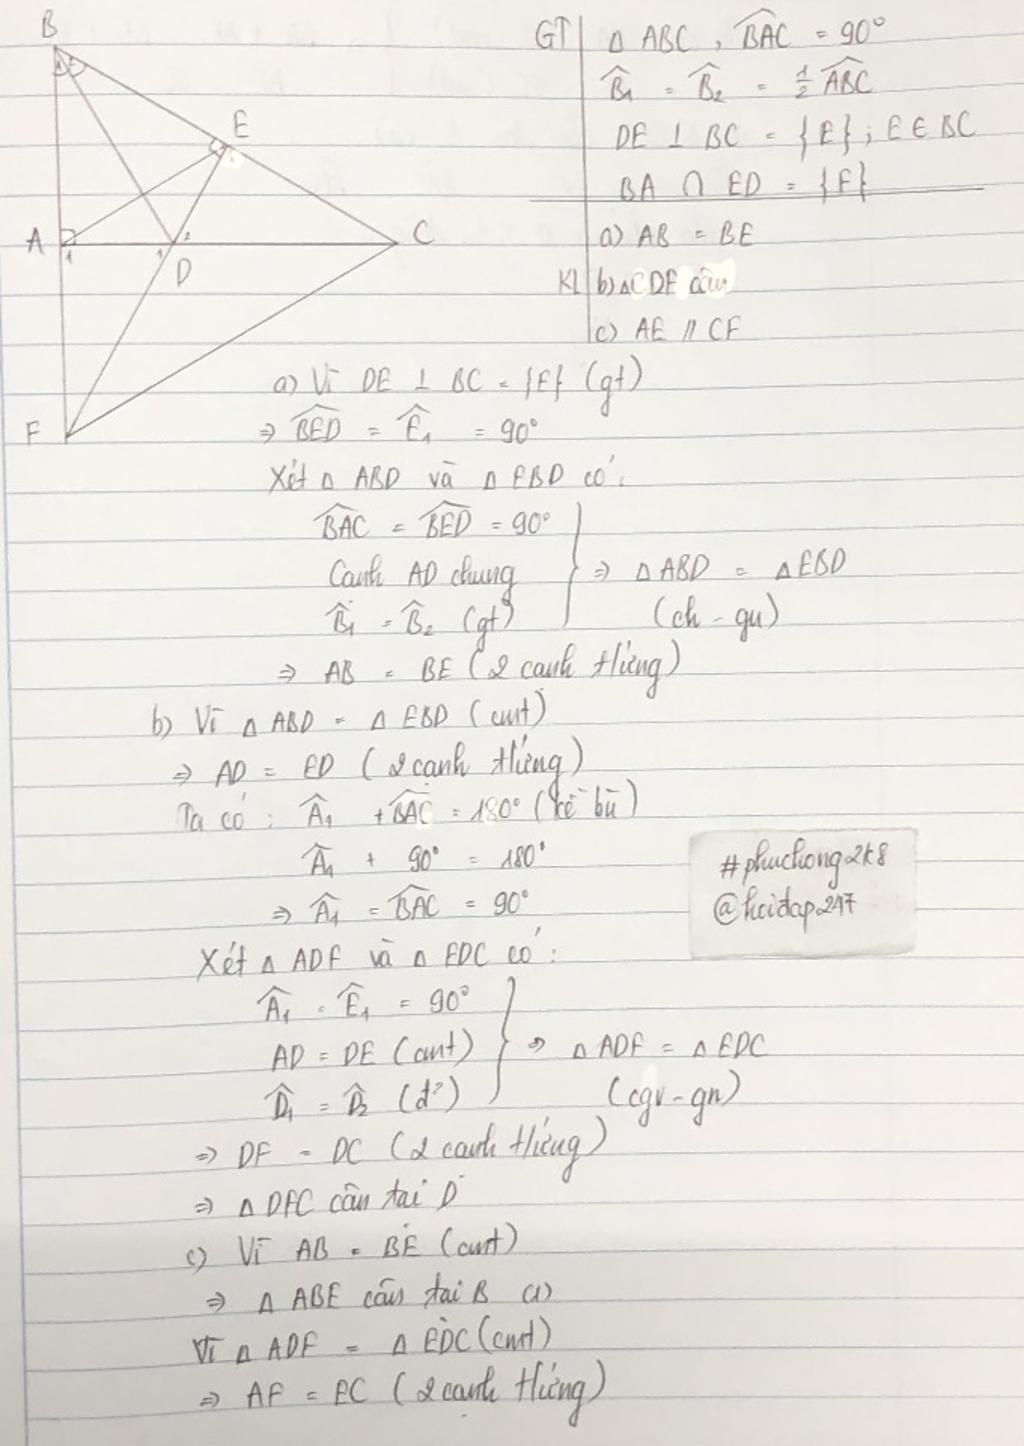 B
E
A
1
1
2
D
C
F
GT
Δ ABC, \widehat{BAC} = 90°
\widehat{B}₁ = \widehat{B}₂ = ½ \widehat{ABC}
DE ⊥ BC = {E}; E ∈ BC
BA ∩ ED = {F}
KL
a) AB = BE
b) ΔCDF cân
c) AE // CF
a) Vì DE ⊥ BC = {E} (gt)
⇒ \widehat{BED} = \widehat{E}₁ = 90°
Xét Δ ABD và Δ EBD có:
\widehat{BAC} = \widehat{BED} = 90°
Cạnh AD chung
\widehat{B}₁ = \widehat{B}₂ (gt)
⇒ Δ ABD = Δ EBD
(ch - gn)
⇒ AB = BE (2 cạnh t/ứng)
b) Vì Δ ABD = Δ EBD (cmt)
⇒ AD = ED (2 cạnh t/ứng)
Ta có: \widehat{A}₁ + \widehat{BAC} = 180° (kề bù)
\widehat{A}₁ + 90° = 180°
⇒ \widehat{A}₁ = \widehat{BAC} = 90°
#phuchong2k8
@hoidap247
Xét Δ ADF và Δ EDC có:
\widehat{A}₁ = \widehat{E}₁ = 90°
AD = DE (cmt)
\widehat{D}₁ = \widehat{D}₂ (đ²)
⇒ Δ ADF = Δ EDC
(cgv - gn)
⇒ DF = DC (2 cạnh t/ứng)
⇒ Δ DFC cân tại D
c) Vì AB = BE (cmt)
⇒ Δ ABE cân tại B (1)
Vì Δ ADF = Δ EDC (cmt)
⇒ AF = EC (2 cạnh t/ứng)